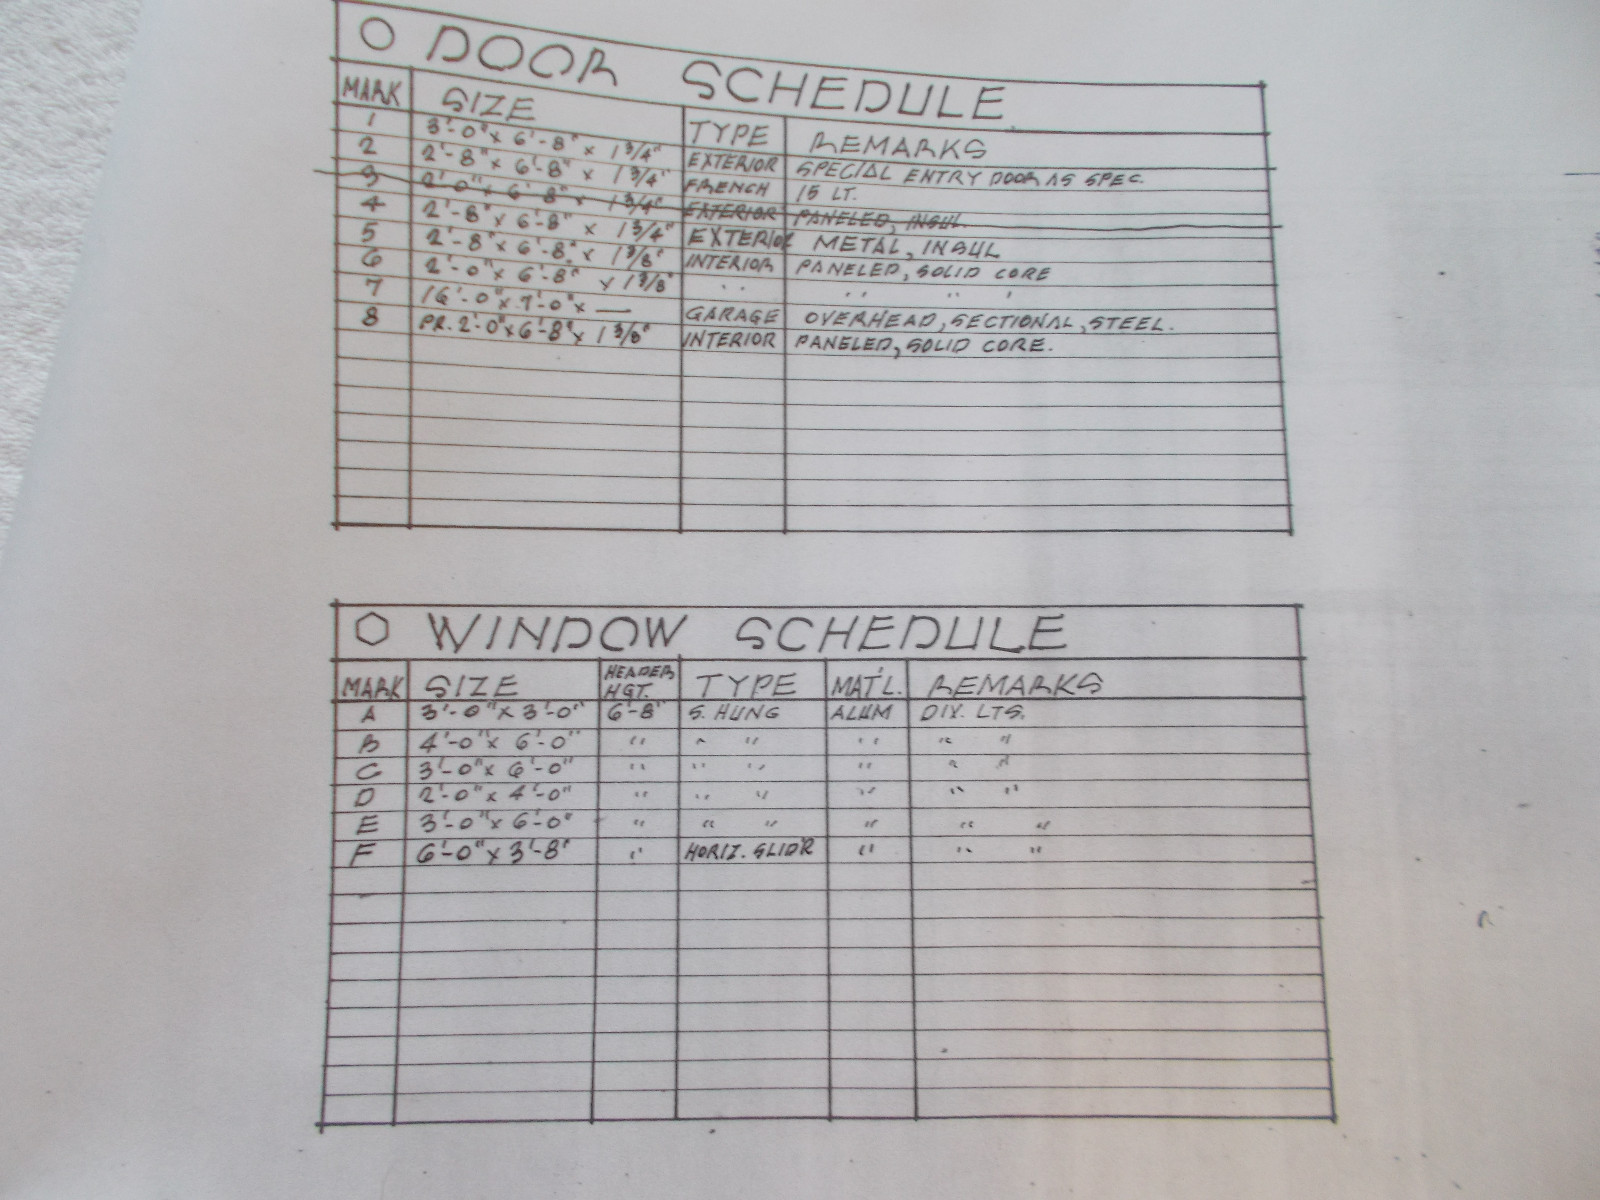 DOOR SCHEDULE
MARK SIZE TYPE REMARKS
1 3'-0" x 6'-8" x 1 3/4" EXTERIOR SPECIAL ENTRY DOOR AS SPEC.
2 2'-8" x 6'-8" x 1 3/4" FRENCH 15 LT.
3 2'-0" x 6'-8" x 1 3/4" EXTERIOR PANELED, INSUL.
4 2'-8" x 6'-8" x 1 3/4" EXTERIOR METAL, INSUL
5 2'-8" x 6'-8" x 1 3/8" INTERIOR PANELED, SOLID CORE
6 2'-0" x 6'-8" x 1 3/8" " " " "
7 16'-0" x 7'-0" x — GARAGE OVERHEAD, SECTIONAL, STEEL.
8 PR. 2'-0" x 6'-8" x 1 3/8" INTERIOR PANELED, SOLID CORE.
WINDOW SCHEDULE
MARK SIZE HEADER HGT. TYPE MAT'L. REMARKS
A 3'-0" x 3'-0" 6'-8" S. HUNG ALUM DIV. LTS.
B 4'-0" x 6'-0" " " " " " "
C 3'-0" x 6'-0" " " " " " "
D 2'-0" x 4'-0" " " " " " "
E 3'-0" x 6'-0" " " " " " "
F 6'-0" x 3'-8" " HORIZ. SLID'R " " "